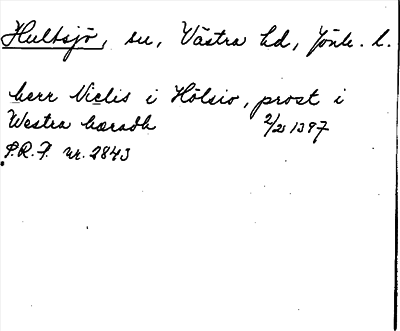 Hultsjö, sn, Västra hd, Jönk. l.
herr Niclis i Hölsio, prost i
Westra hæradh 2/2 1397
S.R.P. nr. 2843